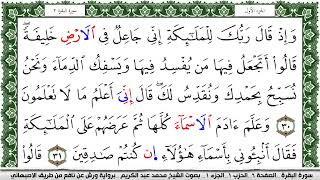 الجزء الأول سورة البقرة
وَإِذْ قَالَ رَبُّكَ لِلْمَلَٰٓئِكَةِ إِنِّى جَاعِلٌ فِى اِلَارْضِ خَلِيفَةً
قَالُوٓاْ أَتَجْعَلُ فِيهَا مَنْ يُّفْسِدُ فِيهَا وَيَسْفِكُ الدِّمَآءَ وَنَحْنُ
نُسَبِّحُ بِحَمْدِكَ وَنُقَدِّسُ لَكَ قَالَ إِنِّىَ أَعْلَمُ مَا لَا تَعْلَمُونَ
٣٠ وَعَلَّمَ ءَادَمَ اَلَاسْمَآءَ كُلَّهَا ثُمَّ عَرَضَهُمْ عَلَى الْمَلَٰٓئِكَةِ
فَقَالَ أَنۢبِـُٔونِى بِأَسْمَآءِ هَٰٓؤُلَآءِ ان كُنتُمْ صَٰدِقِينَ ٣١ قَالُواْ
سورة البقرة الصفحة ٦ الحزب ١ الجزء ١ بصوت الشيخ محمد عبد الكريم برواية ورش عن نافع من طريق الاصبهاني